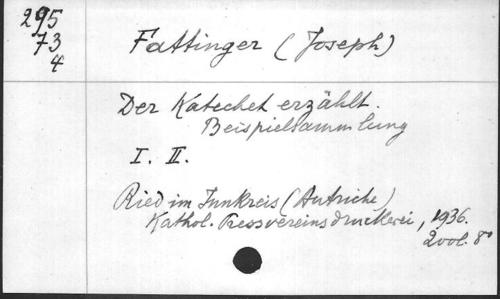 295
73
4
Fattinger (Joseph)
Der Katechet erzählt.
Beispielsammlung
I. II.
Ried im Innkreis (Autriche)
Kathol. Pressvereinsdruckerei, 1936.
2 vol. 8°